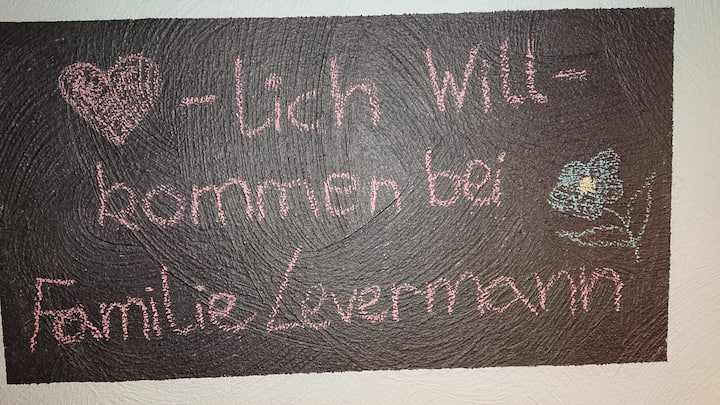 -lich Will-
kommen bei
Familie Levermann